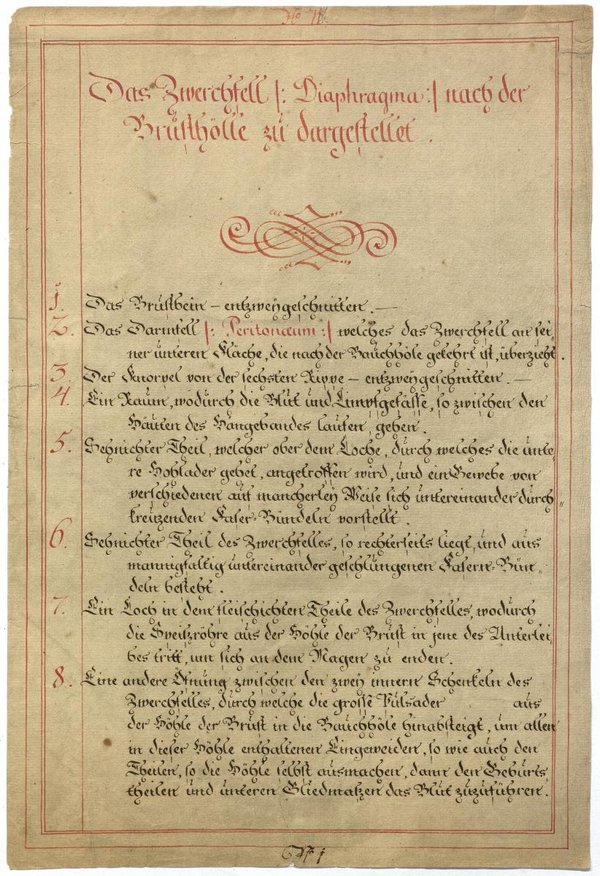 Das Zwerchfell /: Diaphragma :/ nach der
Brusthölle zu dargestellet.
1. Das Brustbein – entzweygeschnitten. —
2. Das Darmfell /: Peritonæum :/ welches das Zwerchfell an sei-
ner unteren Fläche, die nach der Bauchhöle gekehrt ist, überzieht.
3. Der Knorpel von der sechsten Rippe – entzweygeschnitten. —
4. Ein Raum, wodurch die Blut und Limpfgefässe, so zwischen den
Häuten des Hangebandes laufen, gehen.
5. Sehnichter Theil, welcher ober dem Loche, durch welches die unte-
re Hohlader gehet, angetroffen wird, und ein Gewebe von
verschiedenen auf mancherley Weise sich untereinander durch-
kreuzenden Faser-Bündeln vorstellt.
6. Sehnichter Theil des Zwerchfelles, so rechterseits liegt, und aus
mannigfältig untereinander geschlungenen Fasern-Bün-
deln besteht.
7. Ein Loch in dem fleischichten Theile des Zwerchfelles, wodurch
die Speißröhre aus der Höhle der Brust in jene des Unterlei-
bes tritt, um sich an dem Magen zu enden.
8. Eine andere Öfnung zwischen den zwey innern Schenkeln des
Zwerchfelles, durch welche die grosse Pulsader aus
der Höhle der Brust in die Bauchhöle hinabsteigt, um allen
in dieser Höhle enthaltenen Eingeweiden, so wie auch den
Theilen, so die Höhle selbst ausmachen, dann den Geburts-
theilen und unteren Gliedmaßen das Blut zuzuführen.